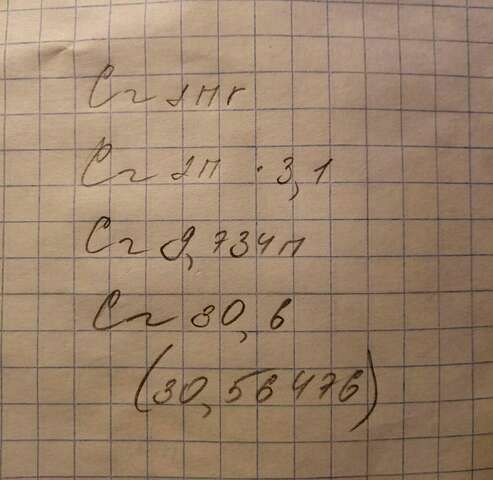 C ~ 2πr
C ~ 2π · 3,1
C ~ 9,734π
C ~ 30,6
(30,56476)